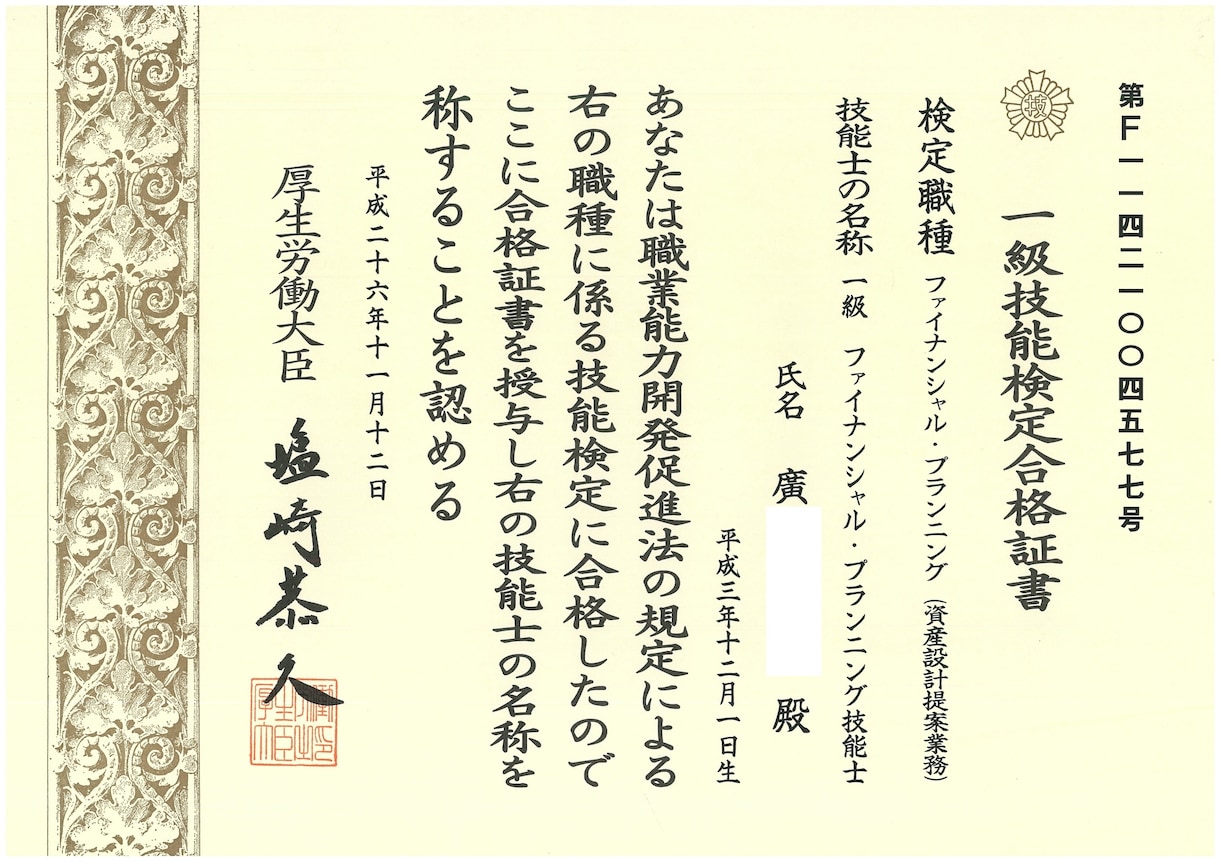 第F一一四二一〇〇四五七七号
技
一級技能検定合格証書
検定職種 ファイナンシャル・プランニング（資産設計提案業務）
技能士の名称 一級 ファイナンシャル・プランニング技能士
氏名 廣 殿
平成三年十二月一日生
あなたは職業能力開発促進法の規定による
右の職種に係る技能検定に合格したので
ここに合格証書を授与し右の技能士の名称を
称することを認める
平成二十六年十一月十二日
厚生労働大臣 塩崎恭久